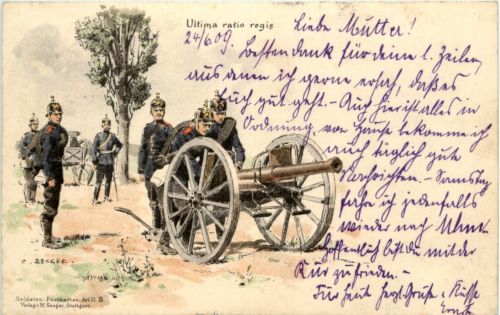 Ultima ratio regis
24/6 09.
Liebe Mutter!
Besten Dank für deine l. Zeilen,
aus denen ich gerne ersah, daß es
Euch gut geht. - Auch hier ist alles in
Ordnung, von Hause bekomme ich
auch täglich gute
Nachrichten. - Samstag
fahre ich jedenfalls
wieder nach
Hoffentlich bist du mit der
Kur zufrieden. -
Für heute herzl. Grüße u. Küsse
Ernst
C. BECKER.
Soldaten-Postkarten. Art. II. B.
Verlag v. M. Seeger, Stuttgart.